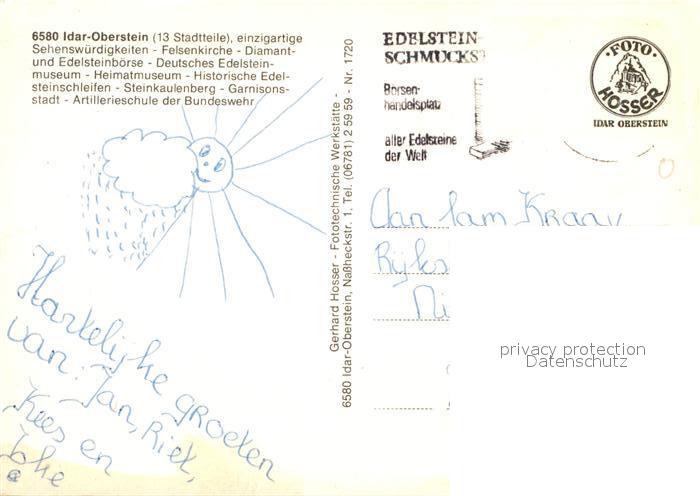 6580 Idar-Oberstein (13 Stadtteile), einzigartige
Sehenswürdigkeiten - Felsenkirche - Diamant-
und Edelsteinbörse - Deutsches Edelstein-
museum - Heimatmuseum - Historische Edel-
steinschleifen - Steinkaulenberg - Garnisons-
stadt - Artillerieschule der Bundeswehr
Hartelijke groeten
van: Jan, Riet,
Kees en
Joke
Gerhard Hosser - Fototechnische Werkstätte -
6580 Idar-Oberstein, Naßheckstr. 1, Tel. (06781) 2 59 59 - Nr. 1720
EDELSTEIN-
SCHMUCKS
Börsen-
handelsplatz
aller Edelsteine
der Welt
· FOTO ·
HOSSER
IDAR OBERSTEIN
Aan fam
Rijks
Ni
privacy protection
Datenschutz